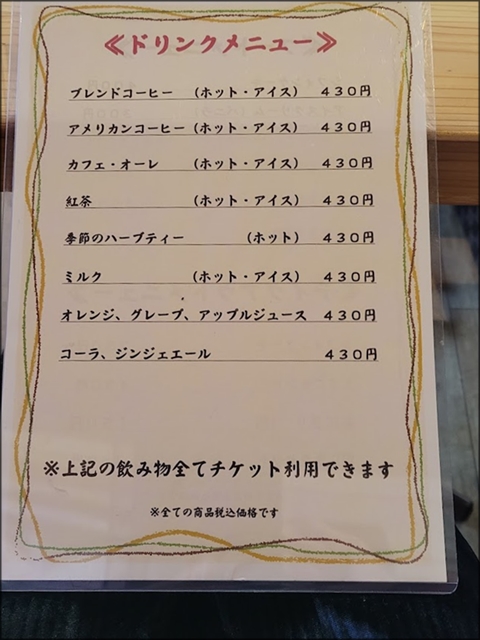 ≪ドリンクメニュー≫
ブレンドコーヒー (ホット・アイス) 430円
アメリカンコーヒー (ホット・アイス) 430円
カフェ・オーレ (ホット・アイス) 430円
紅茶 (ホット・アイス) 430円
季節のハーブティー (ホット) 430円
ミルク (ホット・アイス) 430円
オレンジ、グレープ、アップルジュース 430円
コーラ、ジンジェエール 430円
※上記の飲み物全てチケット利用できます
※全ての商品税込価格です